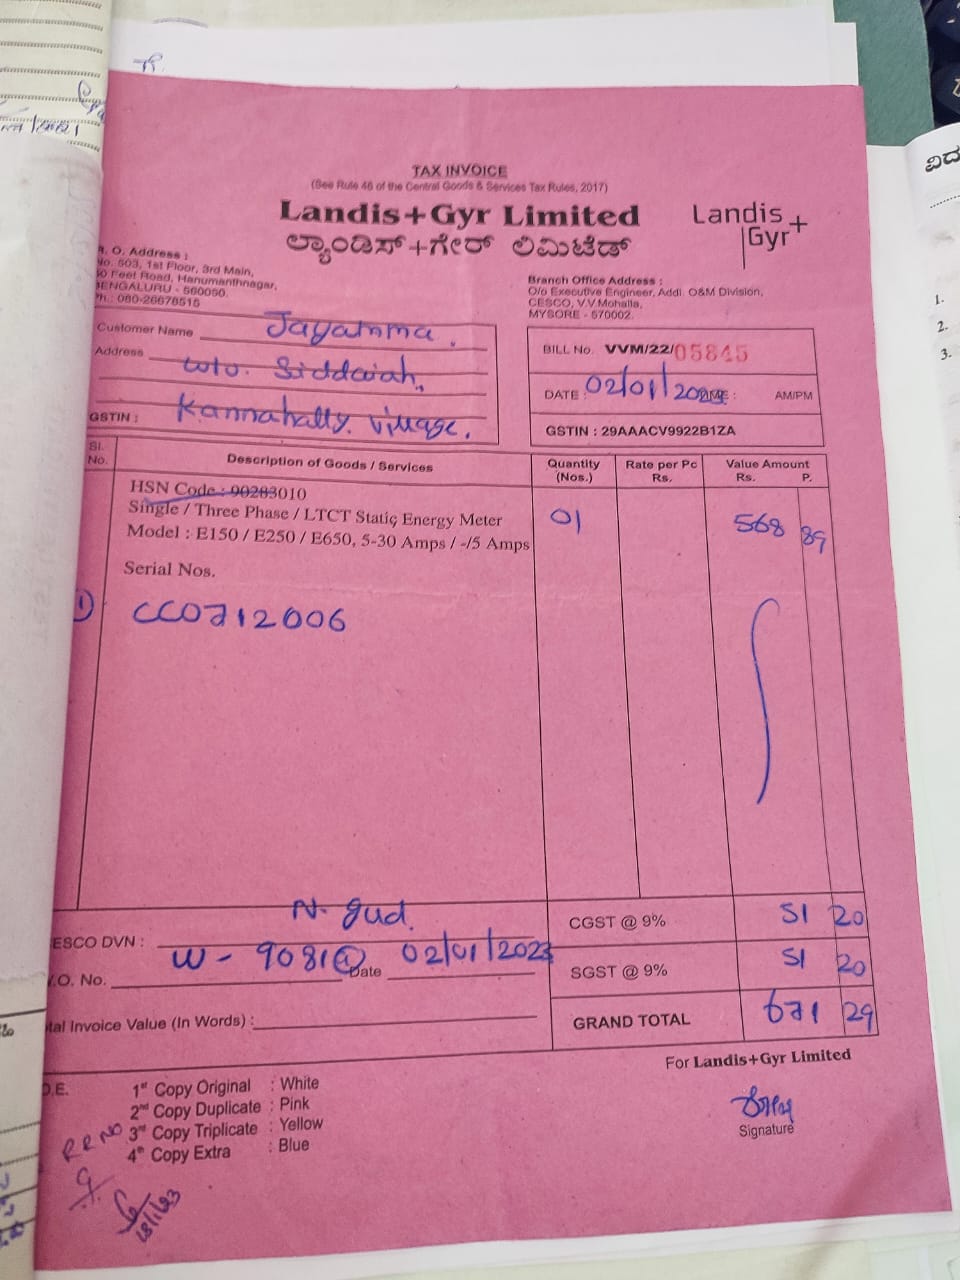 TAX INVOICE
(See Rule 46 of the Central Goods & Services Tax Rules, 2017)
Landis+Gyr Limited
ಲ್ಯಾಂಡಿಸ್+ಗೇರ್ ಲಿಮಿಟೆಡ್
Landis
Gyr+
R. O. Address :
No. 503, 1st Floor, 3rd Main,
Feet Road, Hanumanthnagar,
BENGALURU - 560050.
Ph.: 080-26676515
Branch Office Address :
O/o Executive Engineer, Addl. O&M Division,
CESCO, V.V.Mohalla,
MYSORE - 570002.
Customer Name Jayamma.
Address w/o. Siddaiah,
Kannahally village,
GSTIN :
BILL No. VVM/22/05845
DATE : 02/01/2023 TIME : AM/PM
GSTIN : 29AAACV9922B1ZA
Sl. No. Description of Goods / Services Quantity (Nos.) Rate per Pc Rs. Value Amount Rs. P.
HSN Code : 90283010
Single / Three Phase / LTCT Static Energy Meter 01 568 89
Model : E150 / E250 / E650, 5-30 Amps / -/5 Amps
Serial Nos.
1) CC0712006
CESCO DVN : N. gud.
W.O. No. W - 9081 Date 02/01/2023
CGST @ 9% 51 20
SGST @ 9% 51 20
GRAND TOTAL 671 29
Total Invoice Value (In Words) :
For Landis+Gyr Limited
Signature
1st Copy Original : White
2nd Copy Duplicate : Pink
3rd Copy Triplicate : Yellow
4th Copy Extra : Blue
RR NO
18/1/23
ವಿದ
1.
2.
3.